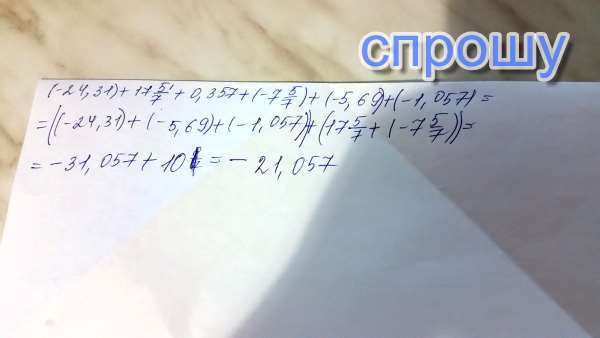 спрошу
(-24,31)+17 5/7+0,357+(-7 5/7)+(-5,69)+(-1,057)=
=((-24,31)+(-5,69)+(-1,057))+(17 5/7+(-7 5/7))=
=-31,057+10=-21,057